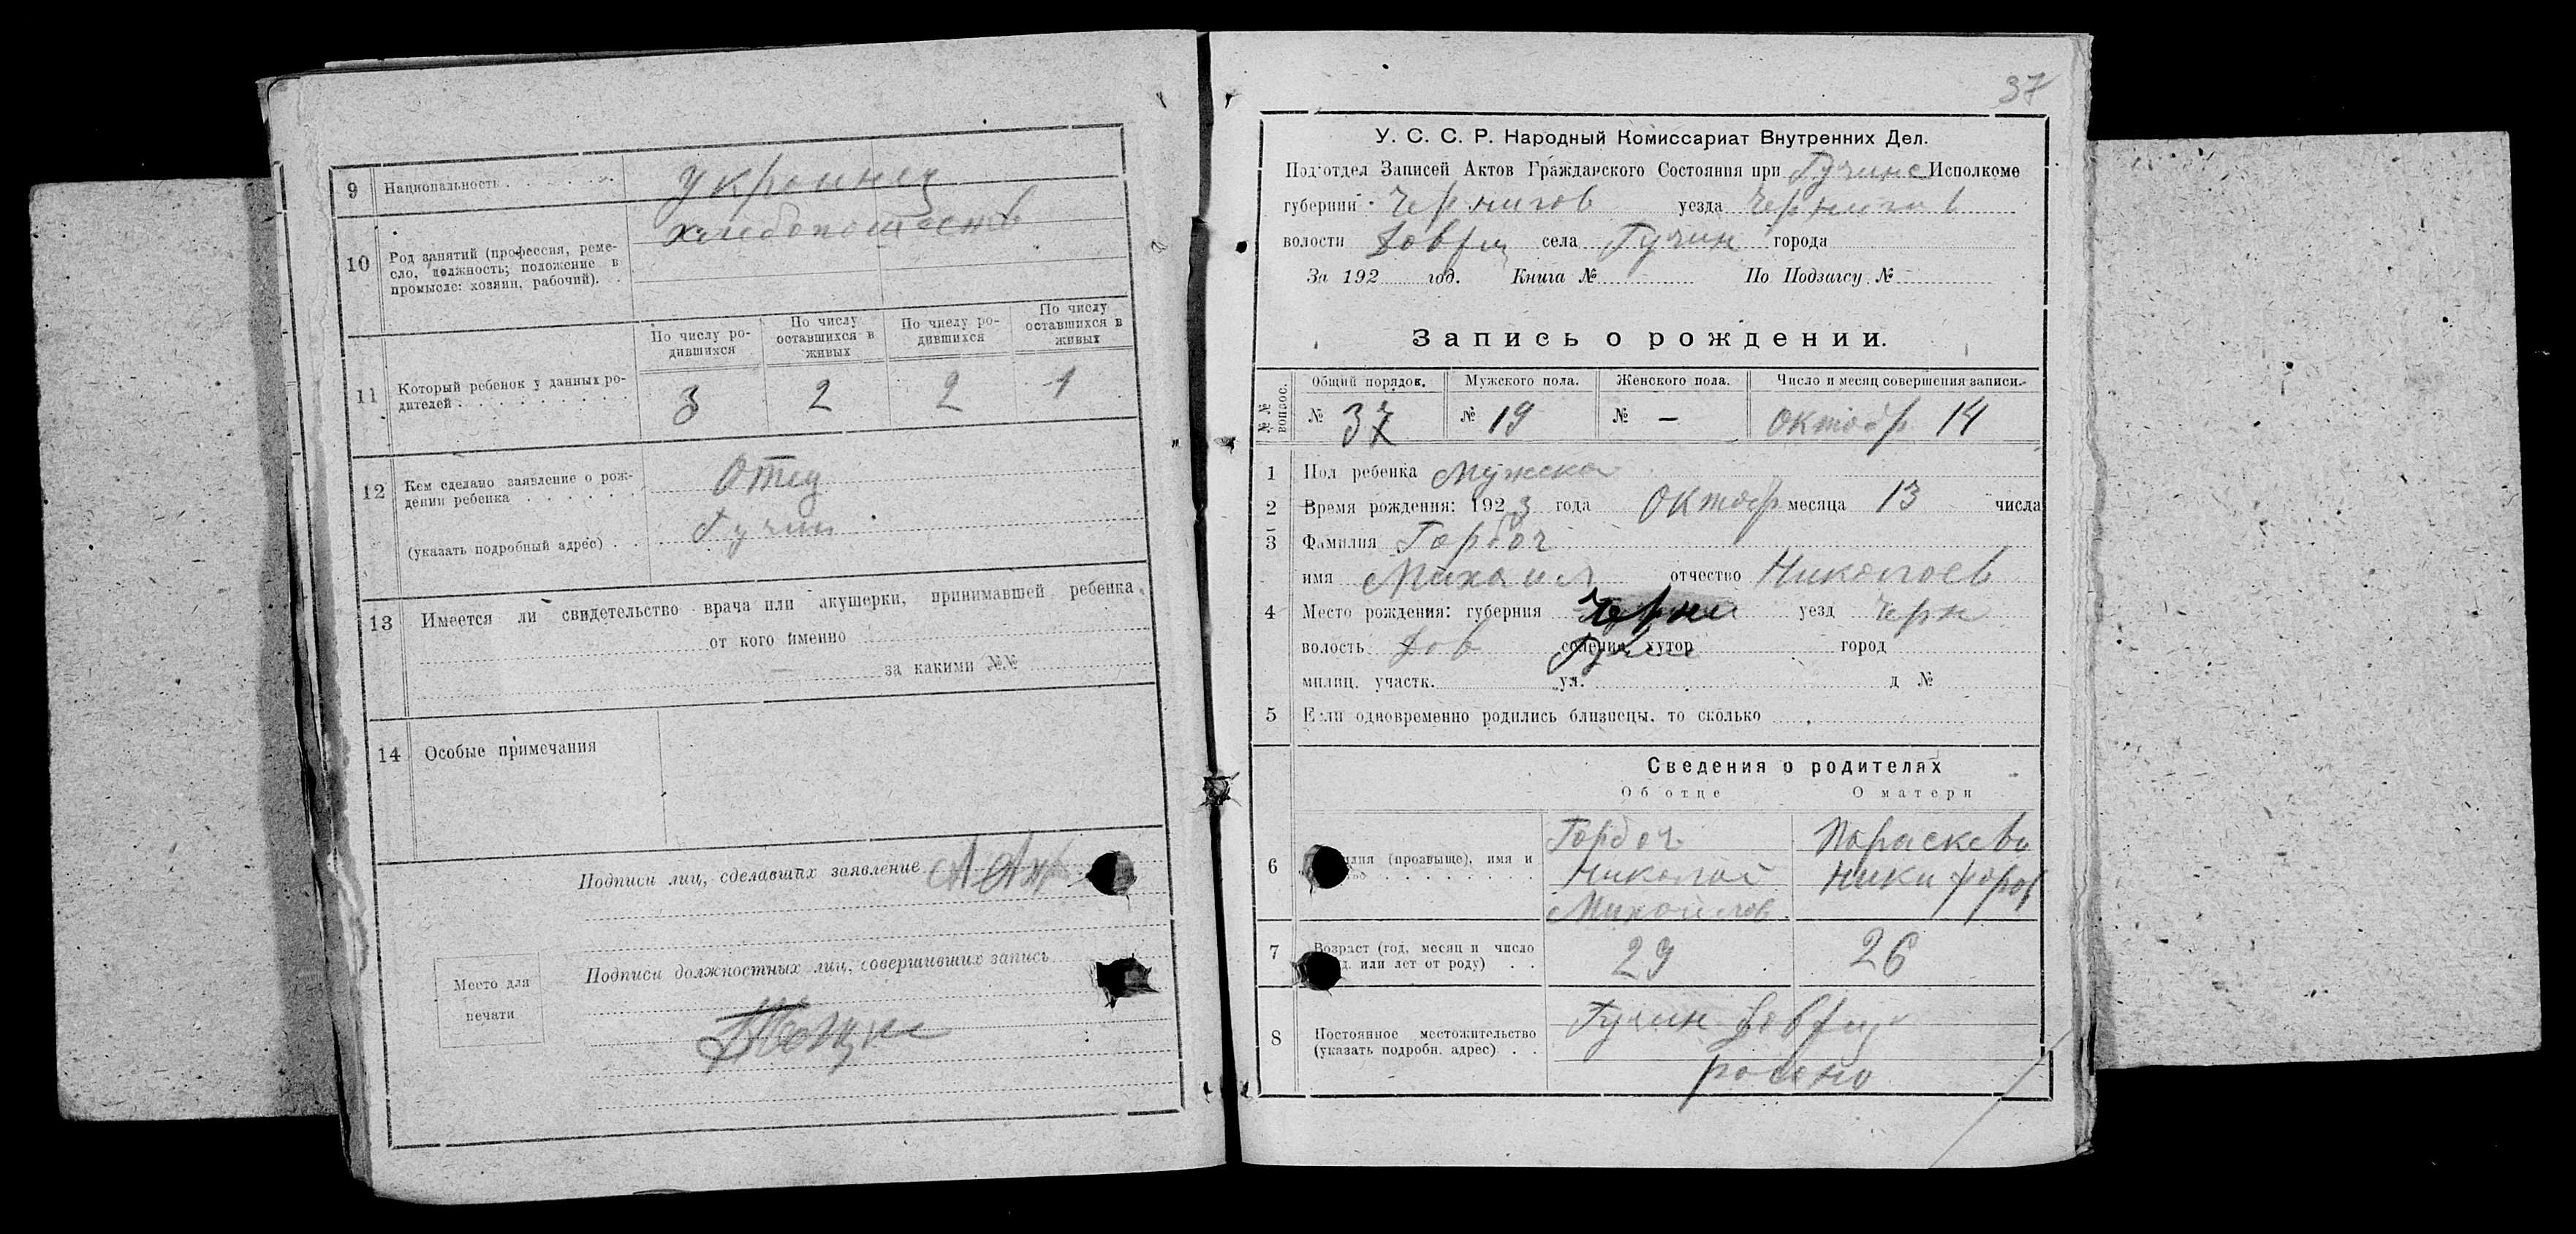 9 Национальность Украинец
10 Род занятий (профессия, реме-
сло, должность; положение в
промысле: хозяин, рабочий). хлебопашеств
По числу ро-
дившихся
По числу
оставшихся в
живых
По числу ро-
дившихся
По числу
оставшихся в
живых
11 Который ребенок у данных ро-
дителей 3 2 2 1
12 Кем сделано заявление о рож-
дении ребенка Отец
(указать подробный адрес) Гучин
13 Имеется ли свидетельство врача или акушерки, принимавшей ребенка
от кого именно
— за какими №№
14 Особые примечания
Подписи лиц, сделавших заявление
Подписи должностных лиц, совершивших запись
Место для
печати
37
У. С. С. Р. Народный Комиссариат Внутренних Дел.
Под'отдел Записей Актов Гражданского Состояния при Гучинс Исполкоме
губернии Чернигов уезда Чернигов
волости села Гучин города
За 192 год. Книга № По Подзагсу №
Запись о рождении.
№№ вопрос. Общий порядок. Мужского пола. Женского пола. Число и месяц совершения записи.
№ 37 № 19 № — Октябр 14
1 Пол ребенка Мужско
2 Время рождения: 1923 года Октябр месяца 13 числа
3 Фамилия Горбач
имя Михаил отчество Николаев
4 Место рождения: губерния Черни уезд Черн
волость Дов селение, хутор Гучин город
милиц. участк. ул. д №
5 Если одновременно родились близнецы. то сколько
Сведения о родителях
Об отце О матери
6 (прозвыще), имя и
Горбач Николай Михайлов
Параскева Никифоров
7 Возраст (год, месяц и число
или лет от роду) 29 26
8 Постоянное местожительство
(указать подробн. адрес) Гучин